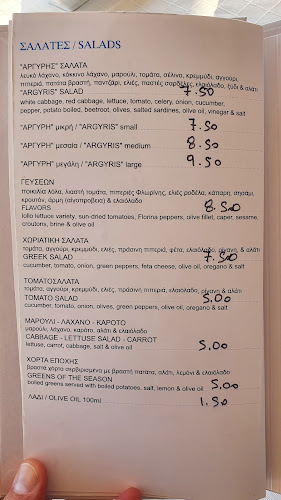 ΣΑΛΑΤΕΣ / SALADS
"ΑΡΓΥΡΗΣ" ΣΑΛΑΤΑ
λευκό λάχανο, κόκκινο λάχανο, μαρούλι, τομάτα, σέλινο, κρεμμύδι, αγγούρι,
πιπεριά, πατάτα βραστή, παντζάρι, ελιές, παστές σαρδέλες, ελαιόλαδο, ξύδι & αλάτι
"ARGYRIS" SALAD 7.50
white cabbage, red cabbage, lettuce, tomato, celery, onion, cucumber,
pepper, potato boiled, beetroot, olives, salted sardines, olive oil, vinegar & salt
"ΑΡΓΥΡΗ" μικρή / "ARGIRIS" small 7.50
"ΑΡΓΥΡΗ" μεσαία / "ARGIRIS" medium 8.50
"ΑΡΓΥΡΗ" μεγάλη / "ARGIRIS" large 9.50
ΓΕΥΣΕΩΝ
ποικιλία λόλα, λιαστή τομάτα, πιπεριές Φλωρίνης, ελιές ροδέλα, κάπαρη, σησάμι,
κρουτόν, άρμη (αλγοπροβεις) & ελαιόλαδο
FLAVORS 8.50
lollo lettuce variety, sun-dried tomatoes, Florina peppers, olive fillet, caper, sesame,
croutons, brine & olive oil
ΧΩΡΙΑΤΙΚΗ ΣΑΛΑΤΑ
τομάτα, αγγούρι, κρεμμύδι, ελιές, πράσινη πιπεριά, φέτα, ελαιόλαδο, ρίγανη, & αλάτι
GREEK SALAD 7.50
cucumber, tomato, onion, green peppers, feta cheese, olive oil, oregano & salt
ΤΟΜΑΤΟΣΑΛΑΤΑ
τομάτα, αγγούρι, κρεμμύδι, ελιές, πράσινη πιπεριά, ελαιόλαδο, ρίγανη & αλάτι
TOMATO SALAD 5.00
cucumber, tomato, onion, olives, green peppers, olive oil, oregano & salt
ΜΑΡΟΥΛΙ - ΛΑΧΑΝΟ - ΚΑΡΟΤΟ
μαρούλι, λάχανο, καρότο, αλάτι & ελαιόλαδο
CABBAGE - LETTUSE SALAD - CARROT
lettuce, carrot, cabbage, salt & olive oil 5.00
ΧΟΡΤΑ ΕΠΟΧΗΣ
βραστα χορτα σερβιρισμένα με βραστή πατάτα, αλάτι, λεμόνι & ελαιόλαδο
GREENS OF THE SEASON
boiled greens served with boiled potatoes, salt, lemon & olive oil 5.00
ΛΑΔΙ / OLIVE OIL 100ml 1.50